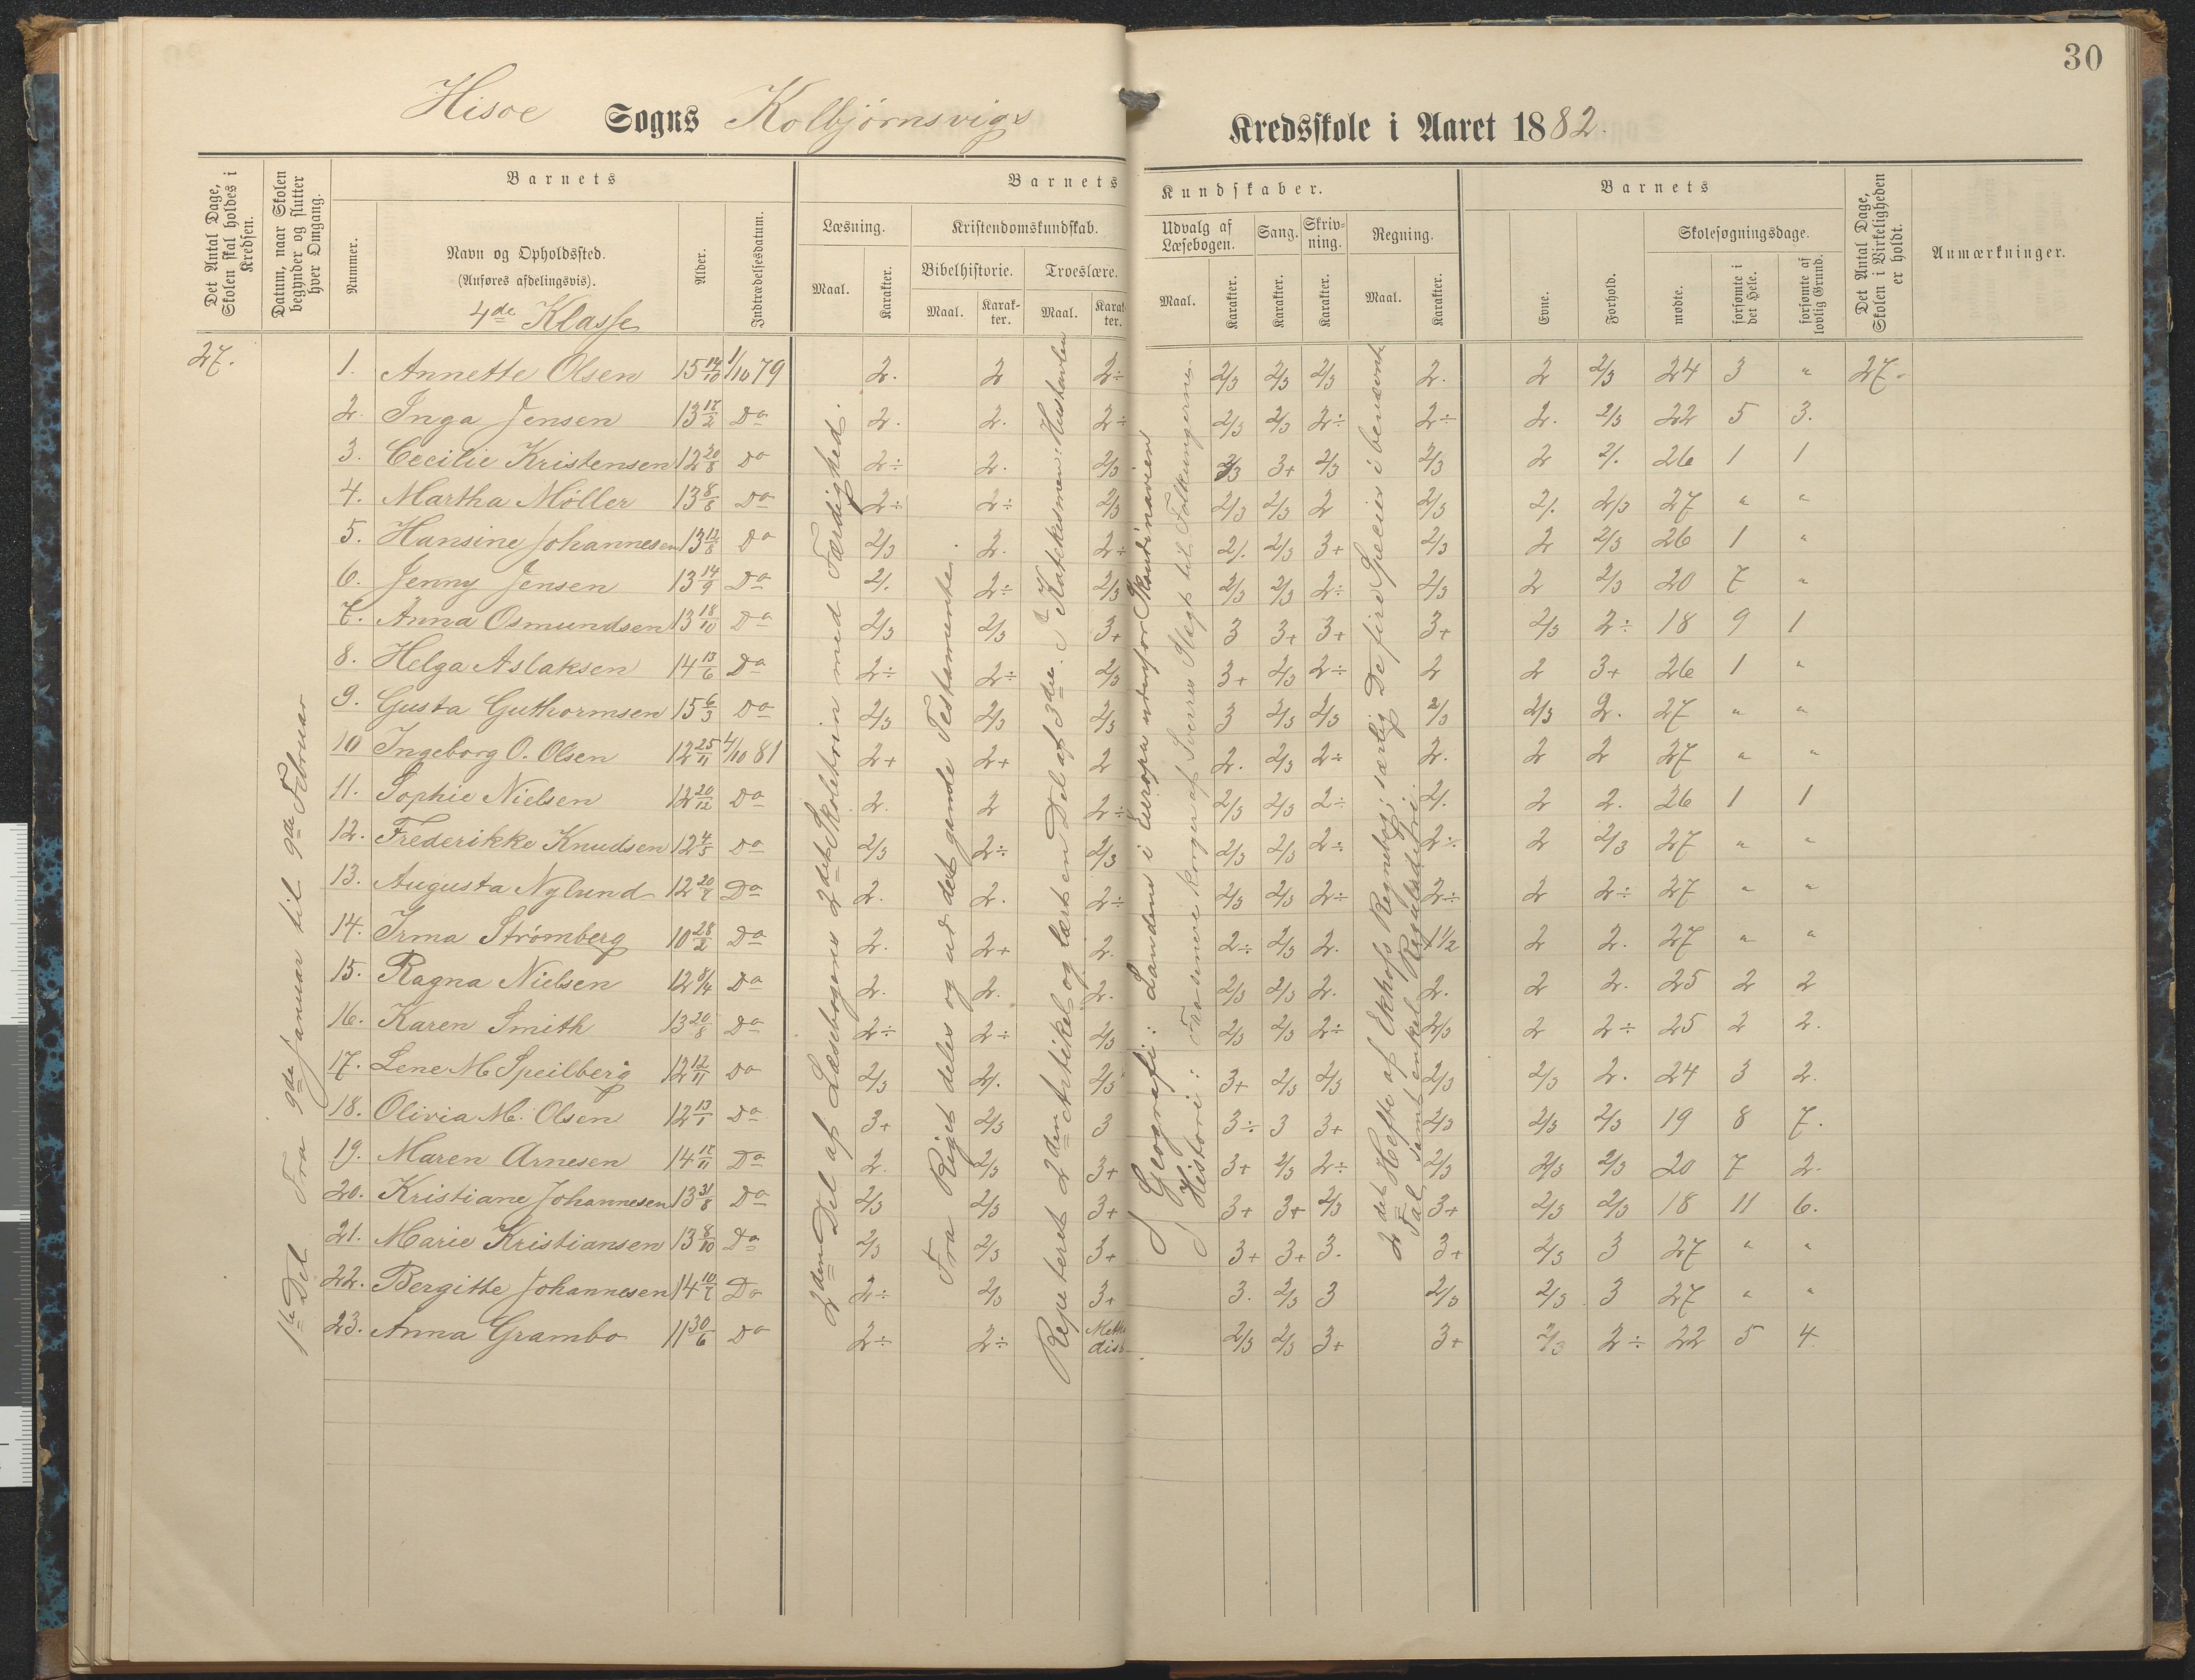 30
Hisoe Sogns Kolbjørnsvigs Kredsskole i Aaret 1882.
Det Antal Dage, Skolen skal holdes i Kredsen.
Datum, naar Skolen begynder og slutter hver Omgang.
Barnets
Nummer.
Navn og Opholdssted.
(Anføres afdelingsvis).
4de Klasse
Alder.
Indtrædelsesdatum.
Barnets Kundskaber.
Læsning.
Maal.
Karakter.
Kristendomskundskab.
Bibelhistorie.
Maal.
Karakter.
Troeslære.
Maal.
Karakter.
Udvalg af Læsebogen.
Maal.
Karakter.
Sang.
Karakter.
Skrivning.
Karakter.
Regning.
Maal.
Karakter.
Barnets
Evne.
Forhold.
Skolesøgningsdage.
mødte.
forsømte i det Hele.
forsømte af lovlig Grund.
Det Antal Dage, Skolen i Virkeligheden er holdt.
Anmærkninger.
27.
1ste Del Fra 9de Januar til 9de Februar
2den Del af Læsebogens 2det Skoletrin med Færdighed.
Fra Riget deles og ud det gamle Testamente.
Repeteret 2den Artikel og lært en Del af 3die. I Katekismen: Hustavlen
Geografi: Landene i Europa udenfor Skandinavien
Historie: Fra senere Konger af Sverres Slægt til Folkungerne
2det Hefte af Ekhofs Regnebog, særlig De fire Specier i benævnte
Tal, samt enkel Reguladetri.
1. Annette Olsen 15 14/10 1/10 79 2. 2 2÷ 2/3 2/3 2/3 2. 2 2/3 24 3 " 27.
2. Inga Jensen 13 17/2 Do 2. 2. 2÷ 2/3 2/3 2÷ 2÷ 2. 2/3 22 5 3.
3. Cecilie Kristensen 12 20/8 Do 2÷ 2. 2/3 2/3 3+ 2/3 2/3 2 2/. 26 1 1
4. Martha Møller 13 8/8 Do 2÷ 2÷ 2/3 2/3 2/3 2 2/3 2/. 2/3 27 " "
5. Hansine Johannesen 13 12/8 Do 2/3 2. 2÷ 2/. 2/3 3+ 2/3 2 2/3 26 1 "
6. Jenny Jensen 13 14/9 Do 2/. 2÷ 2/3 2/3 2/3 2÷ 2/3 2 2/3 20 7 "
7. Anna Osmundsen 13 18/10 Do 2/3 2/3 3+ 3 3+ 3+ 3+ 2/3 2÷ 18 9 1
8. Helga Aslaksen 14 13/6 Do 2÷ 2÷ 2/3 3+ 2/3 2÷ 2 2 3+ 26 1 "
9. Gusta Guthormsen 15 6/3 Do 2/3 2/3 2/3 3 2/3 2/3 2/3 2/3 2. 27 " "
10 Ingeborg O. Olsen 12 25/11 4/10 81 2+ 2+ 2 2. 2/3 2÷ 2. 2 2 27 " "
11. Sophie Nielsen 12 20/12 Do 2. 2 2÷ 2/3 2/3 2÷ 2/. 2 2. 26 1 1
12. Frederikke Knudsen 12 4/5 Do 2/3 2÷ 2/3 2/3 2/3 2÷ 2÷ 2 2/3 27 " "
13. Augusta Nylund 12 20/7 Do 2. 2. 2÷ 2/3 2/3 2÷ 2÷ 2 2÷ 27 " "
14. Irma Strømberg 10 28/2 Do 2. 2+ 2. 2÷ 2/3 2. 1 1/2 2 2. 27 " "
15. Ragna Nielsen 12 8/4 Do 2. 2. 2. 2/3 2/3 2. 2. 2 2. 25 2 2
16. Karen Smith 13 20/8 Do 2÷ 2÷ 2/3 2/3 2/3 2÷ 2/3 2 2÷ 25 2 2.
17. Lene M Speilberg 12 12/11 Do 2/3 2/. 2/3 3+ 2/3 2/3 2/3 2/3 2. 24 3 2.
18. Olivia M. Olsen 12 13/1 Do 3+ 2/3 3 3÷ 3 3+ 2/3 2/3 2/3 19 8 7.
19. Maren Arnesen 14 17/11 Do 2. 2/3 3+ 3+ 2/3 2÷ 2/3 2/3 2/3 20 7 2.
20. Kristiane Johannesen 13 31/8 Do 2/3 2/3 3+ 3+ 3+ 2/3 3+ 2/3 2/3 18 11 6.
21. Marie Kristiansen 13 8/10 Do 2/3 2/3 3+ 3+ 3+ 3. 3+ 2/3 3 27 " "
22. Bergitte Johannesen 14 10/7 Do 2÷ 2/3 3+ 3. 2/3 3 2/3 2/3 3 27 " "
23. Anna Grambo 11 30/6 Do 2÷ 2÷ 2/3 2/3 3+ 3+ 2/3 2÷ 22 5 4.